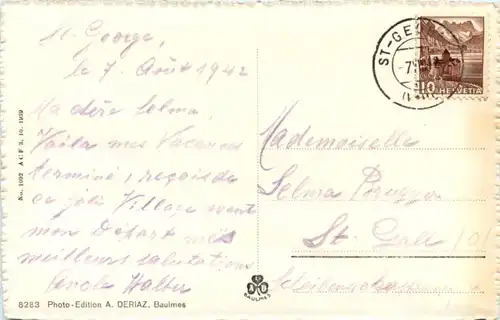 St-George,
le 7. Août 1942
Ma chère Selma,
Voila mes Vacances
terminé, reçois de
ce joli Village avant
mon Départ mes
meilleurs salutations
Oncle Walter
No. 1092 A C F 3. 10. 1939
8283 Photo-Edition A. DERIAZ, Baulmes
BAULMES
ST-GE
10 HELVETIA
Mademoiselle
Selma
St. Gall